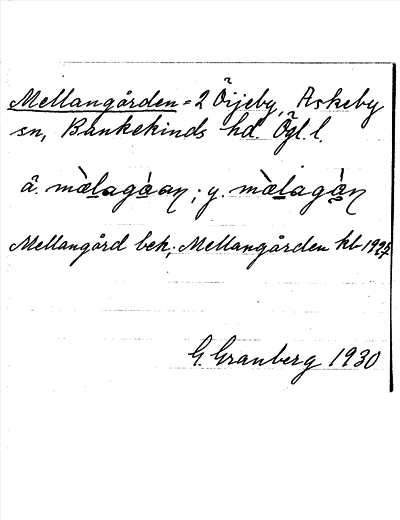 Mellangården = 2 Öijeby, Askeby
sn, Bankekinds hd. Ögl. l.
ä. mèlagáan; y. mèlagàn
Mellangård bek.; Mellangården kb 1925-27
G. Granberg 1930